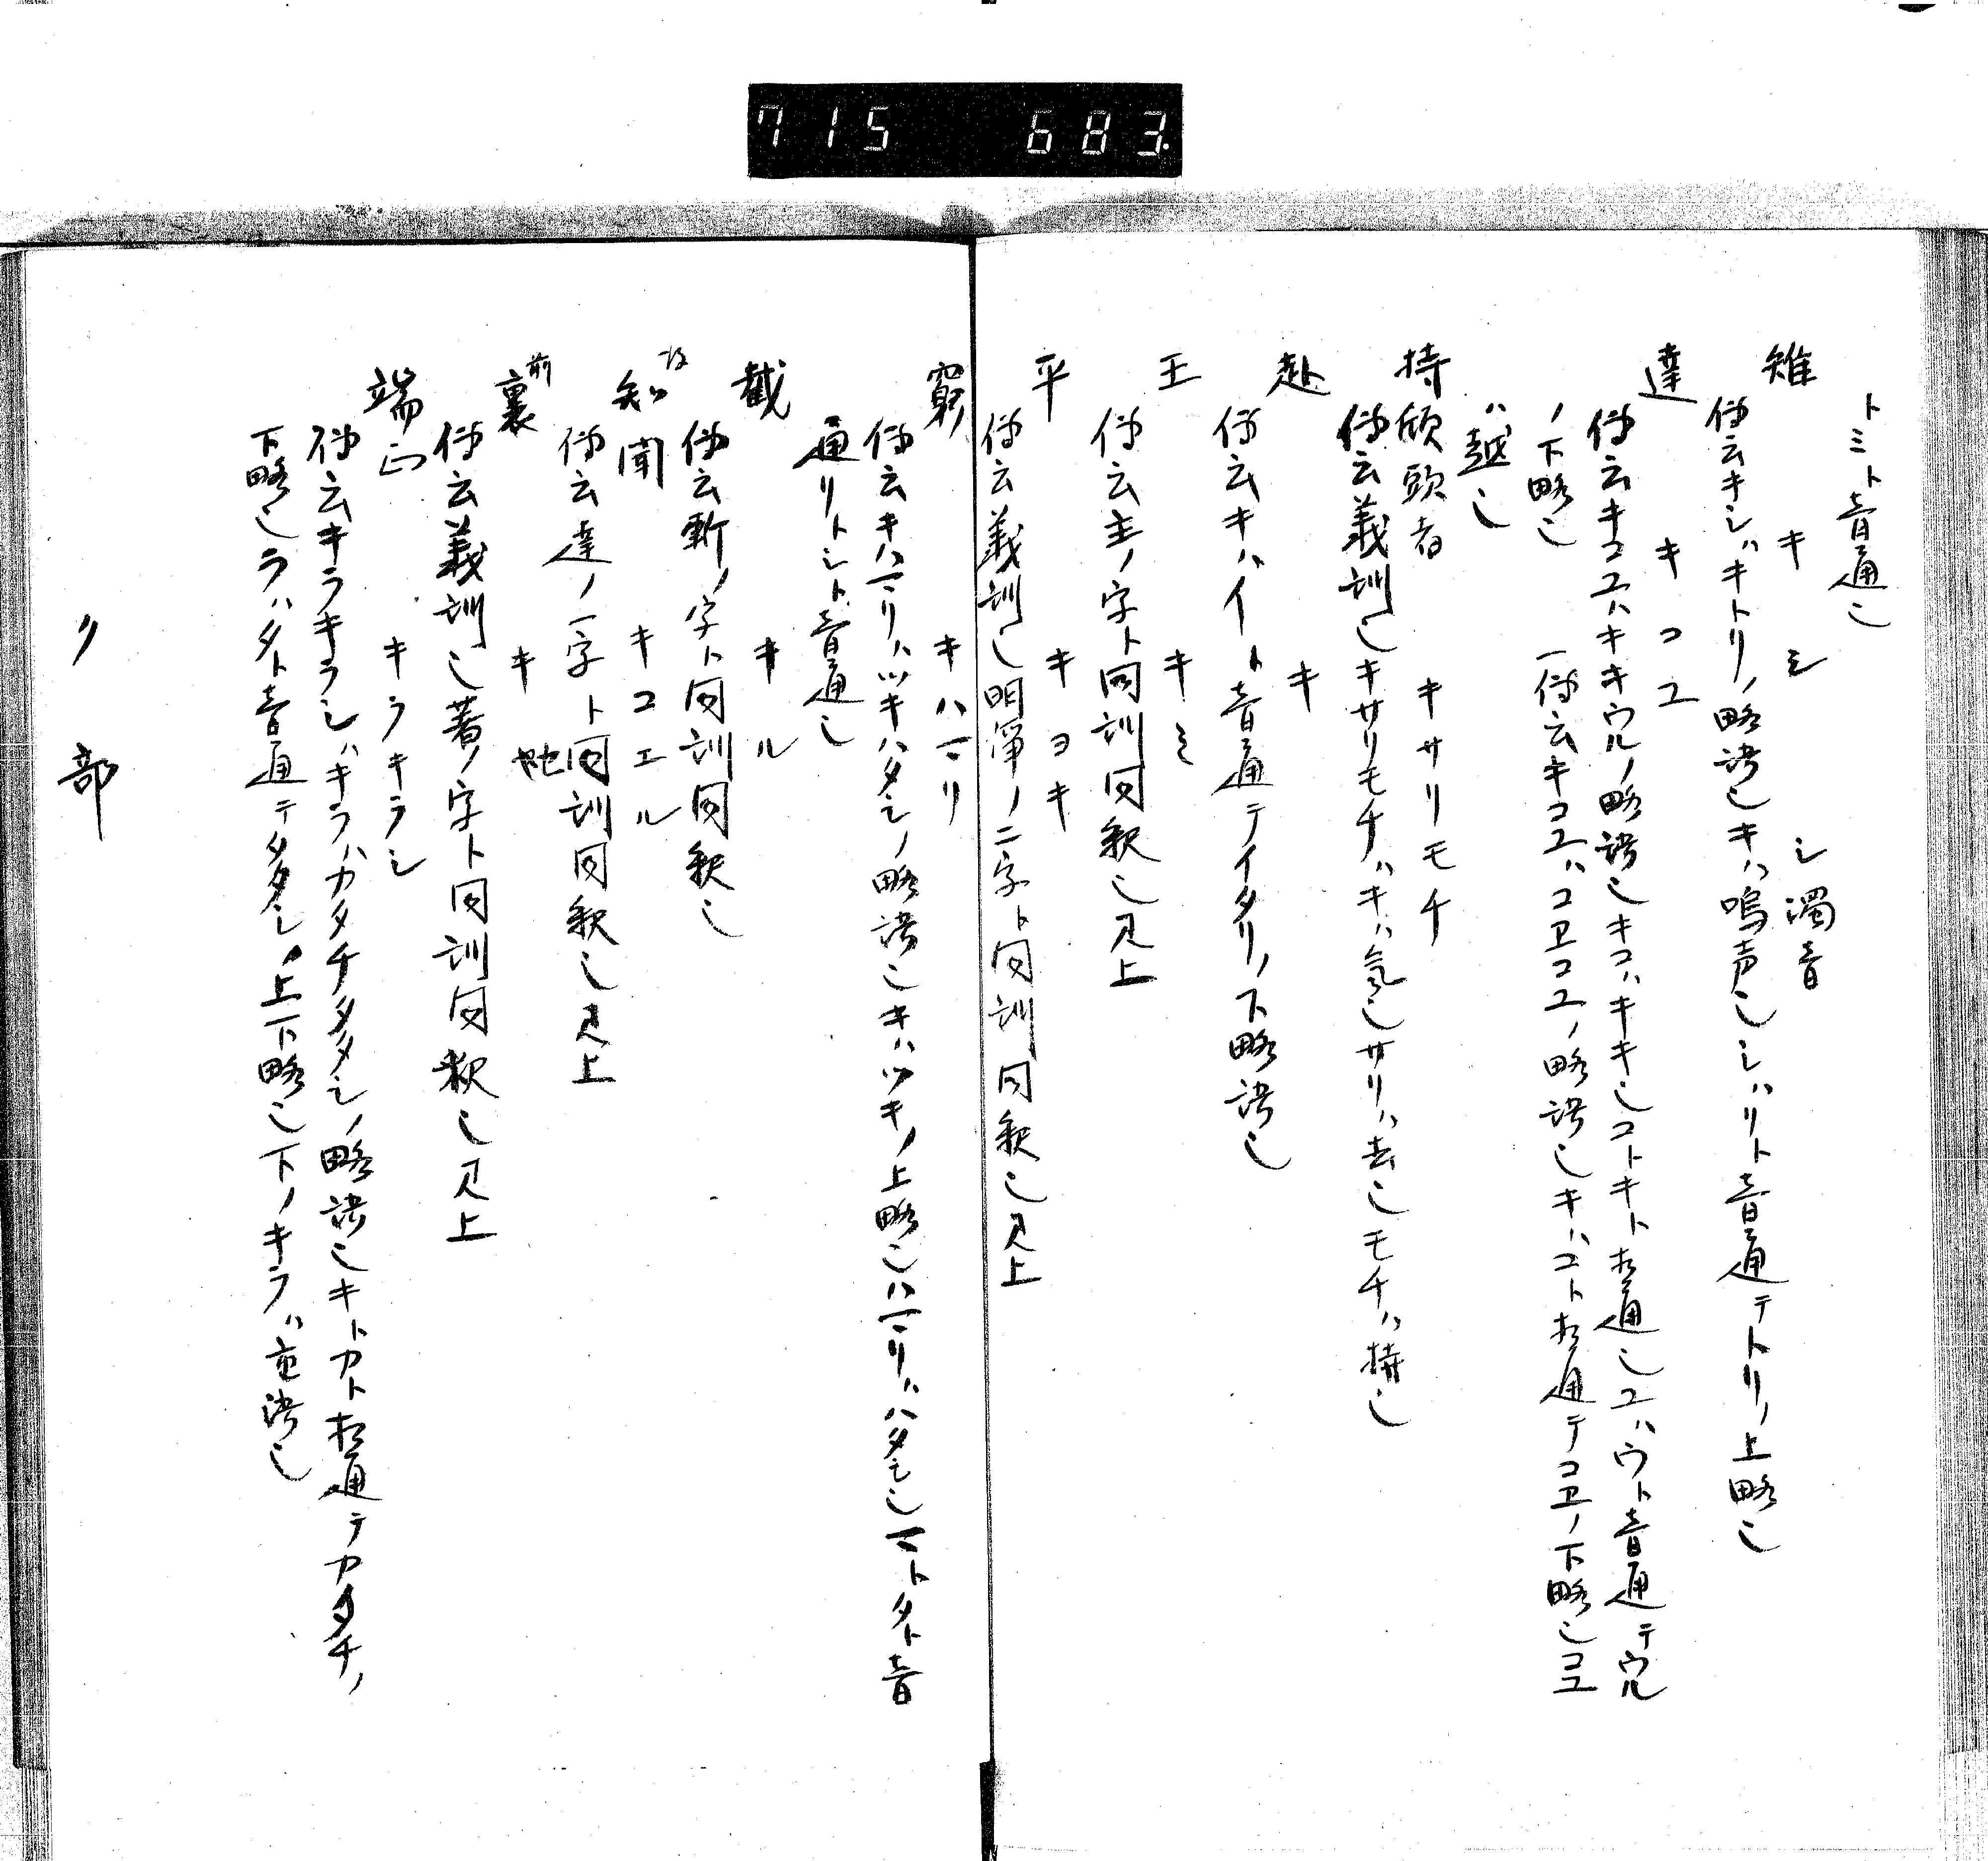 715 683.
トミト音通也
雉 キシ シ濁音
傳云キシハキトリノ略語也キハ鳴声也シハリト音通テトリノ上略也
達 キコユ
傳云キコユハキキウルノ略語也キコハキキ也コトキト相通也ユハウト音通テウル
ノ下略也 一傳云キコユハコヱコユノ略語也キハコト相通テコヱノ下略也コユ
ハ越也
持傾頭者 キサリモチ
傳云義訓也キサリモチハキハ氣也サリハ去也モチハ持也
赴 キ
傳云キハイト音通テイタリノ下略語也
王 キミ
傳云主ノ字ト同訓同釈也見上
平 キヨキ
傳云義訓也明淨ノ二字ト同訓同釈也見上
窮 キハマリ
傳云キハマリハツキハタシノ略語也キハツキノ上略也ハマリハハタシ也マトタト音
通リトシト音通也
截 キル
傳云斬ノ字ト同訓同釈也
知聞 キコエル
傳云達ノ一字ト同訓同釈也見上
前裏 キ
傳云義訓也著ノ字ト同訓同釈也見上
端正 キラキラシ
傳云キラキラシハキラハカタチタタシノ略語也キトカト相通テカタチノ
下略也ラハタト音通テタタシノ上下略也下ノキラハ重語也
ク部